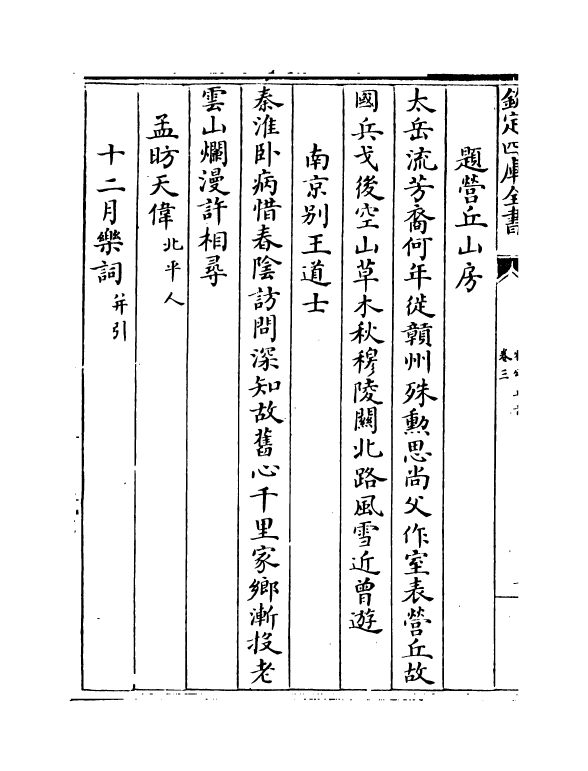 欽定四庫全書
卷三
題營丘山房
太岳流芳裔何年從贛州殊勲思尚父作室表營丘故
國兵戈後空山草木秋穆陵闗北路風雪近曾遊
南京别王道士
秦淮卧病惜春隂訪問深知故舊心千里家鄉漸投老
雲山爛漫許相尋
孟昉天偉北平人
十二月樂詞并引